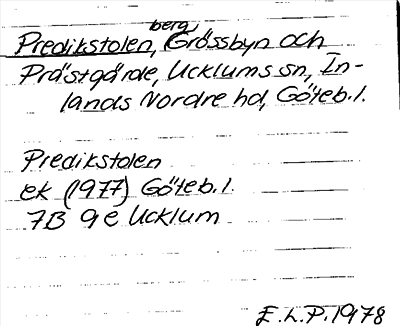 berg,
Predikstolen, Grössbyn och
Prästgårde, Ucklums sn, In-
lands Nordre hd, Göteb.l.
Predikstolen
ek (1977) Göteb.l.
7B 9e Ucklum
E.L.P. 1978